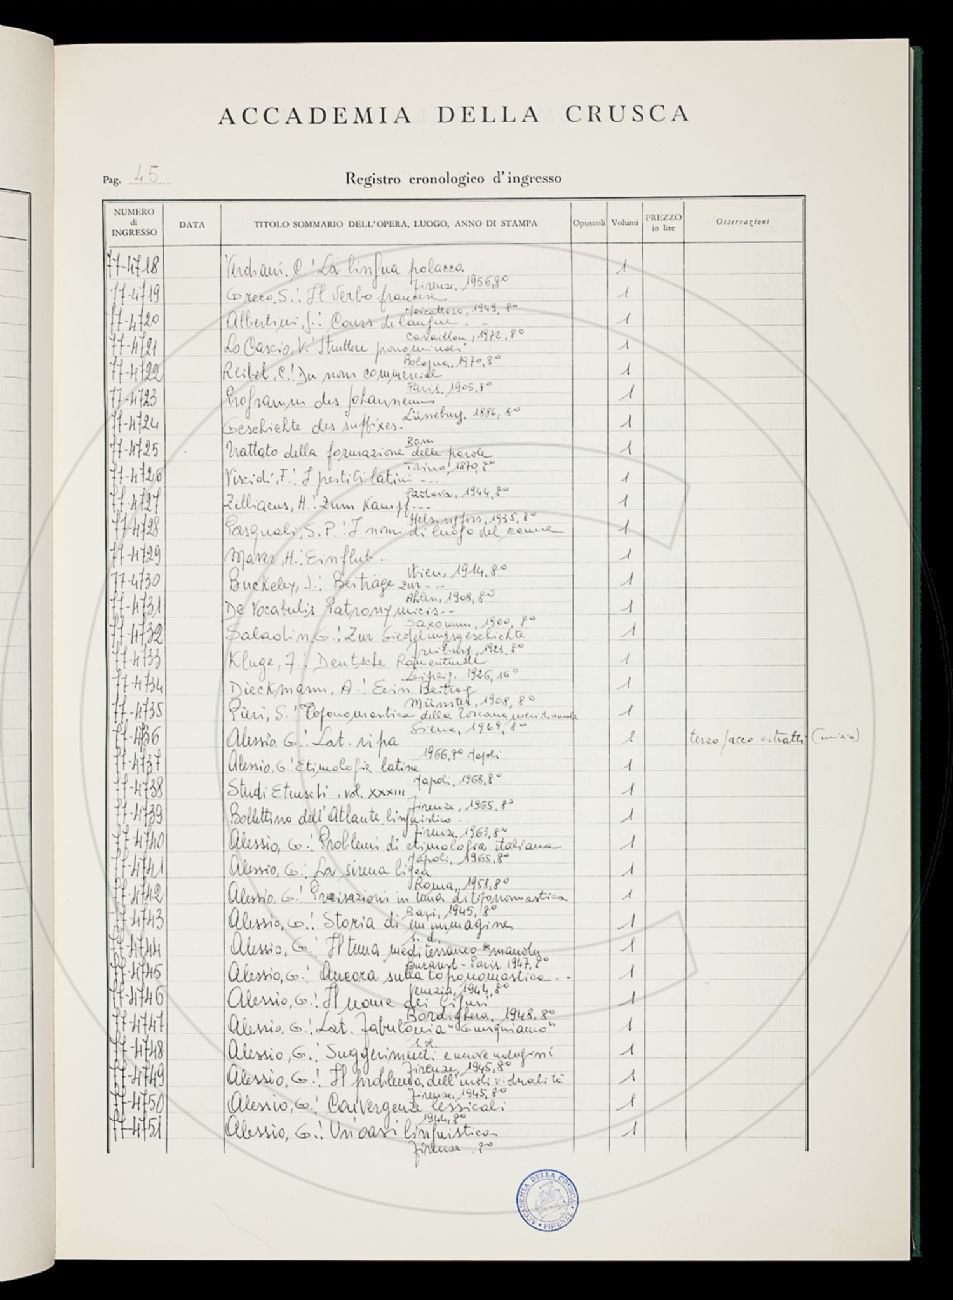 ACCADEMIA DELLA CRUSCA
Pag. 45
Registro cronologico d'ingresso
NUMERO di INGRESSO DATA TITOLO SOMMARIO DELL'OPERA, LUOGO, ANNO DI STAMPA Opuscoli Volumi PREZZO in lire Osservazioni
77-4718 Verdiani, C.: La lingua polacca 1
Firenze, 1956, 8°
77-4719 Greco, S.: Il Verbo francese 1
1949, 8°
77-4720 Albertini, J.: Cours de langue 1
Cavaillon, 1972, 8°
77-4721 Lo Cascio, V.: Strutture pronominali 1
Bologna, 1970, 8°
77-4722 Reibel, C.: Du nom commercial 1
Paris, 1905, 8°
77-4723 Programm des Johanneums 1
Lüneburg, 1886, 8°
77-4724 Geschichte des suffixes. 1
Bonn
77-4725 Trattato della formazione delle parole 1
Torino, 1870, 8°
77-4726 Viscidi, F.: I prestiti latini ... 1
Padova, 1944, 8°
77-4727 Zilliacus, H.: Zum Kampf... 1
Helsingfors, 1935, 8°
77-4728 Pasquali, S. P.: I nomi di luogo del 1
77-4729 Maver, H.: Einfluß.. 1
Wien, 1914, 8°
77-4730 Buckeley, J.: Beiträge zur... 1
1908, 8°
77-4731 De Vocabulis Patronymicis... 1
Saxonum, 1900, 8°
77-4732 Saladin, G.: Zur Siedelungsgeschichte 1
Freiburg, 1923, 8°
77-4733 Kluge, F.: Deutsche 1
Leipzig, 1926, 16°
77-4734 Dieckmann, A.: Ein Beitrag 1
Münster, 1908, 8°
77-4735 Pieri, S.: Toponomastica della Toscana meridionale 1
Siena, 1969, 8°
77-4736 Alessio G.: Lat. ripa 1 estratti
1966, 8° Napoli
77-4737 Alessio, G.: Etimologie latine 1
Napoli, 1968, 8°
77-4738 Studi Etruschi. vol. XXXIII 1
Firenze, 1965, 8°
77-4739 Bollettino dell'Atlante linguistico ... 1
Firenze, 1963, 8°
77-4740 Alessio, G.: Problemi di etimologia italiana 1
Napoli, 1965, 8°
77-4741 Alessio, G.: La sirena ligea 1
Roma, 1951, 8°
77-4742 Alessio, G.: Precisazioni in tema di toponomastica 1
Bari, 1945, 8°
77-4743 Alessio, G.: Storia di un'immagine 1
s. d.
77-4744 Alessio, G.: Il tema mediterraneo 1
Bucarest - Paris 1947, 8°
77-4745 Alessio, G.: Ancora sulla toponomastica... 1
Venezia, 1944, 8°
77-4746 Alessio, G.: Il nome dei Liguri 1
Bordighera, 1948, 8°
77-4747 Alessio, G.: Lat. fabulonia "Giusquiamo" 1
77-4748 Alessio, G.: Suggerimenti e nuove indagini 1
Firenze, 1945, 8°
77-4749 Alessio, G.: Il problema dell'individualità 1
Firenze, 1945, 8°
77-4750 Alessio, G.: Convergenze lessicali 1
1944, 8°
77-4751 Alessio, G.: Un'oasi linguistica 1
Firenze, 8°
ACCADEMIA DELLA CRUSCA FIRENZE